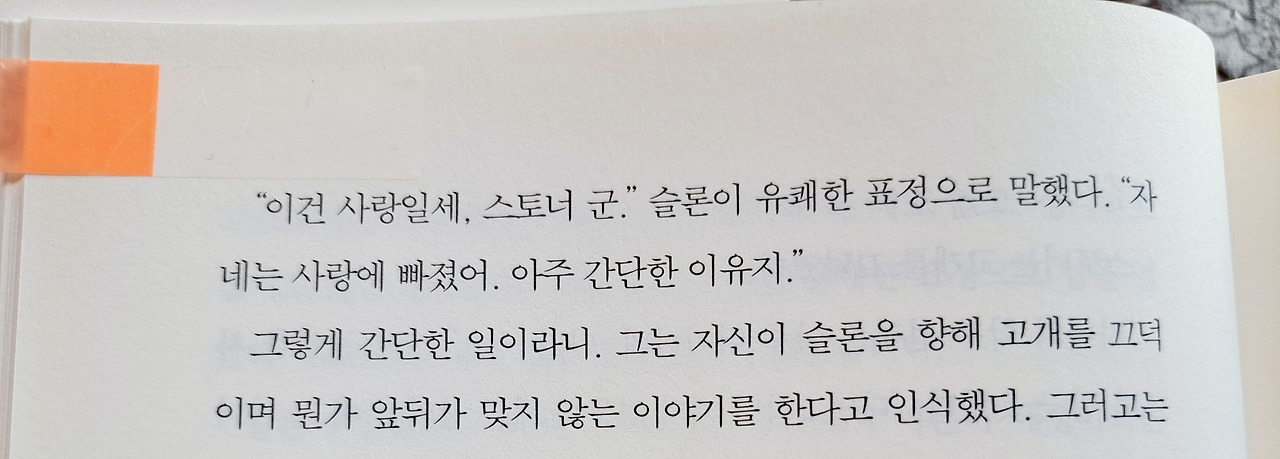 “이건 사랑일세, 스토너 군.” 슬론이 유쾌한 표정으로 말했다. “자
네는 사랑에 빠졌어. 아주 간단한 이유지.”
그렇게 간단한 일이라니. 그는 자신이 슬론을 향해 고개를 끄덕
이며 뭔가 앞뒤가 맞지 않는 이야기를 한다고 인식했다. 그러고는